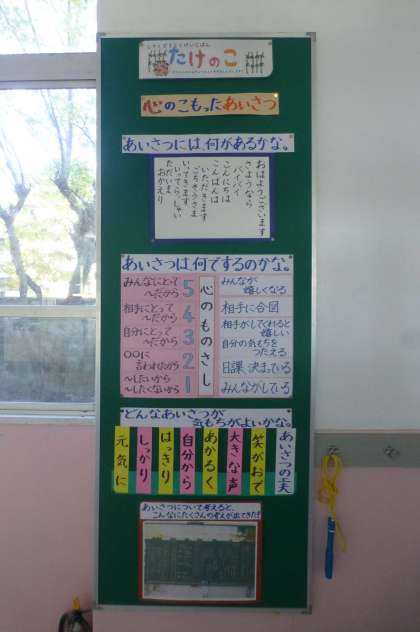 たけのこ
心のこもったあいさつ
あいさつには、何があるかな。
おはようございます
さようなら
バイバイ
こんにちは
こんばんは
いただきます
ごちそうさま
いってきます
いってらっしゃい
ただいま
おかえり
あいさつは、何でするのかな。
みんなにとって
〜だから
相手にとって
〜だから
自分にとって
〜だから
〇〇に
言われたから
〜したいから
〜したくないから
5
4
3
2
1
心のものさし
みんなが
嬉しくなる
相手に合図
相手がしてくれると
嬉しい
自分の気もちを
つたえる
日課、決まっている
みんながしている
どんなあいさつが
気もちがよいかな。
あいさつの工夫
笑がおで
大きな声
あかるく
自分から
はっきり
しっかり
元気に
あいさつについて考えると、
こんなにたくさんの考えが出てきたよ